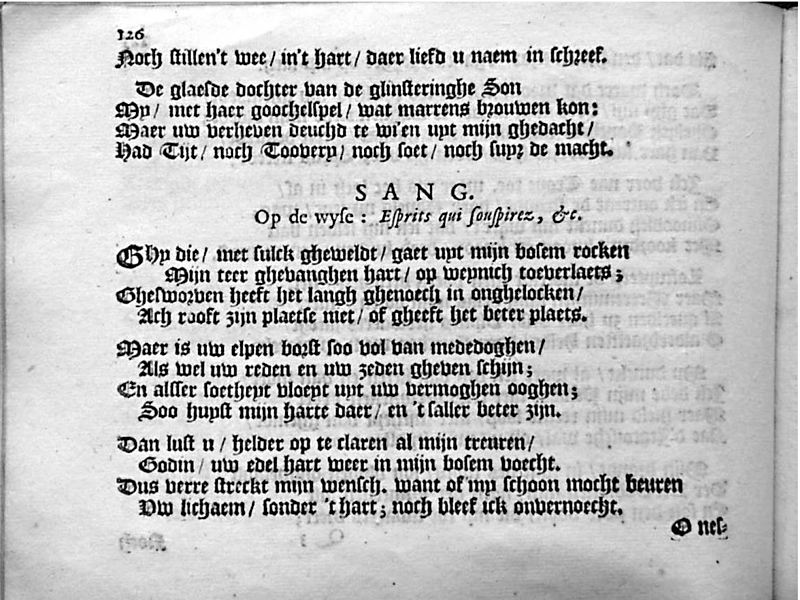 126
Noch stillen't wee/ in't hart/ daer liefd u naem in schreef.
De glaesde dochter van de glinsteringhe Son
My/ met haer goochelspel/ wat marrens brouwen kon:
Maer uw verheven deuchd te wi'en uyt mijn ghedacht/
Had Tijt/ noch Toovery/ noch soet/ noch suyr de macht.
SANG.
Op de wyse: Esprits qui souspirez, &c.
Ghy die/ met sulck gheweldt/ gaet uyt mijn bosem rocken
Mijn teer ghevanghen hart/ op weynich toeverlaets;
Ghesworven heeft het langh ghenoech in onghelocken/
Ach rooft zijn plaetse niet/ of gheeft het beter plaets.
Maer is uw elpen borst soo vol van mededoghen/
Als wel uw reden en uw zeden gheven schijn;
En alsser soetheyt vloeyt uyt uw vermoghen ooghen;
Soo huyst mijn harte daer/ en 't saller beter zijn.
Dan lust u/ helder op te claren al mijn treuren/
Godin/ uw edel hart weer in mijn bosem voecht.
Dus verre streckt mijn wensch. want of my schoon mocht beuren
Uw lichaem/ sonder 't hart; noch bleef ick onvernoecht.
O nes-